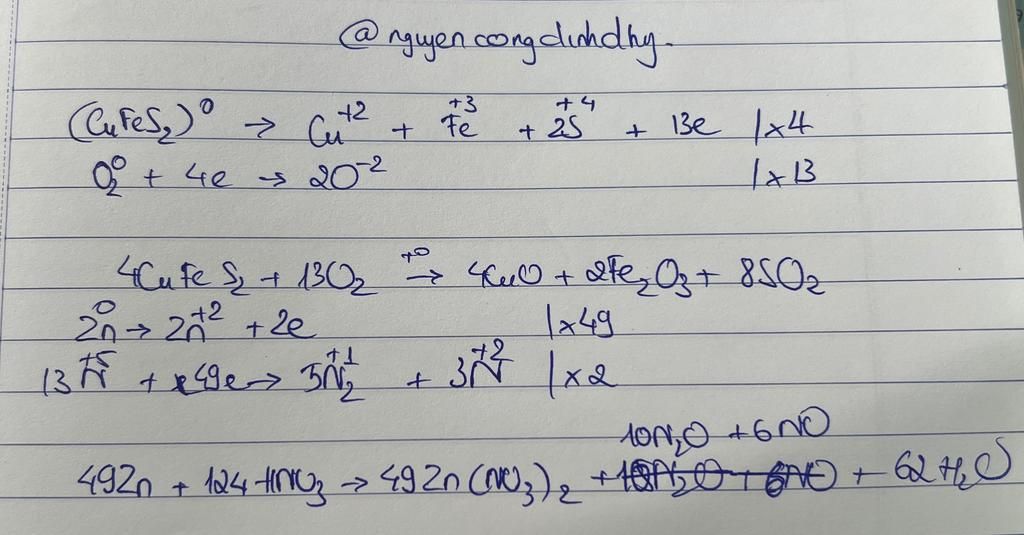 @nguyencongdinhdhy.
(CuFeS₂)⁰ → Cu⁺² + Fe⁺³ + 2S⁺⁴ + 13e |x4
O₂⁰ + 4e → 2O⁻² |x13
4CuFeS₂ + 13O₂ →(t⁰) 4CuO + 2Fe₂O₃ + 8SO₂
Zn⁰ → Zn⁺² + 2e |x49
13N⁺⁵ + 49e → 5N₂⁺¹ + 3N⁺² |x2
10N₂O + 6NO
49Zn + 124HNO₃ → 49Zn(NO₃)₂ + 10N₂O + 6NO + 62H₂O